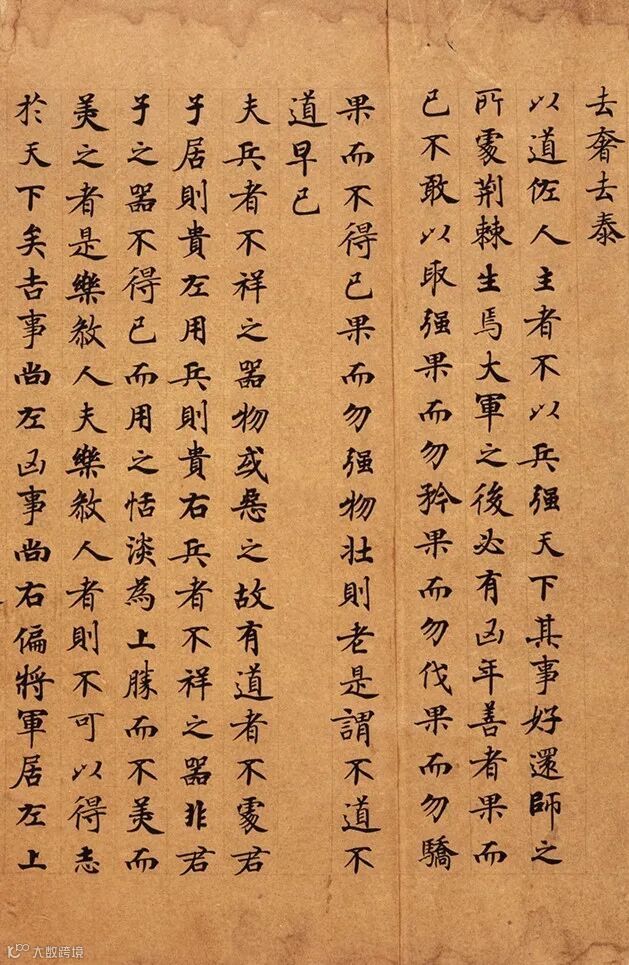 去奢去泰
以道佐人主者不以兵强天下其事好還師之
所處荆棘生焉大軍之後必有凶年善者果而
已不敢以取强果而勿矜果而勿伐果而勿驕
果而不得已果而勿强物壯則老是謂不道不
道早已
夫兵者不祥之器物或惡之故有道者不處君
子居則貴左用兵則貴右兵者不祥之器非君
子之器不得已而用之恬淡為上勝而不美而
美之者是樂敘人夫樂敘人者則不可以得志
於天下矣吉事尚左凶事尚右偏將軍居左上
大数跨境